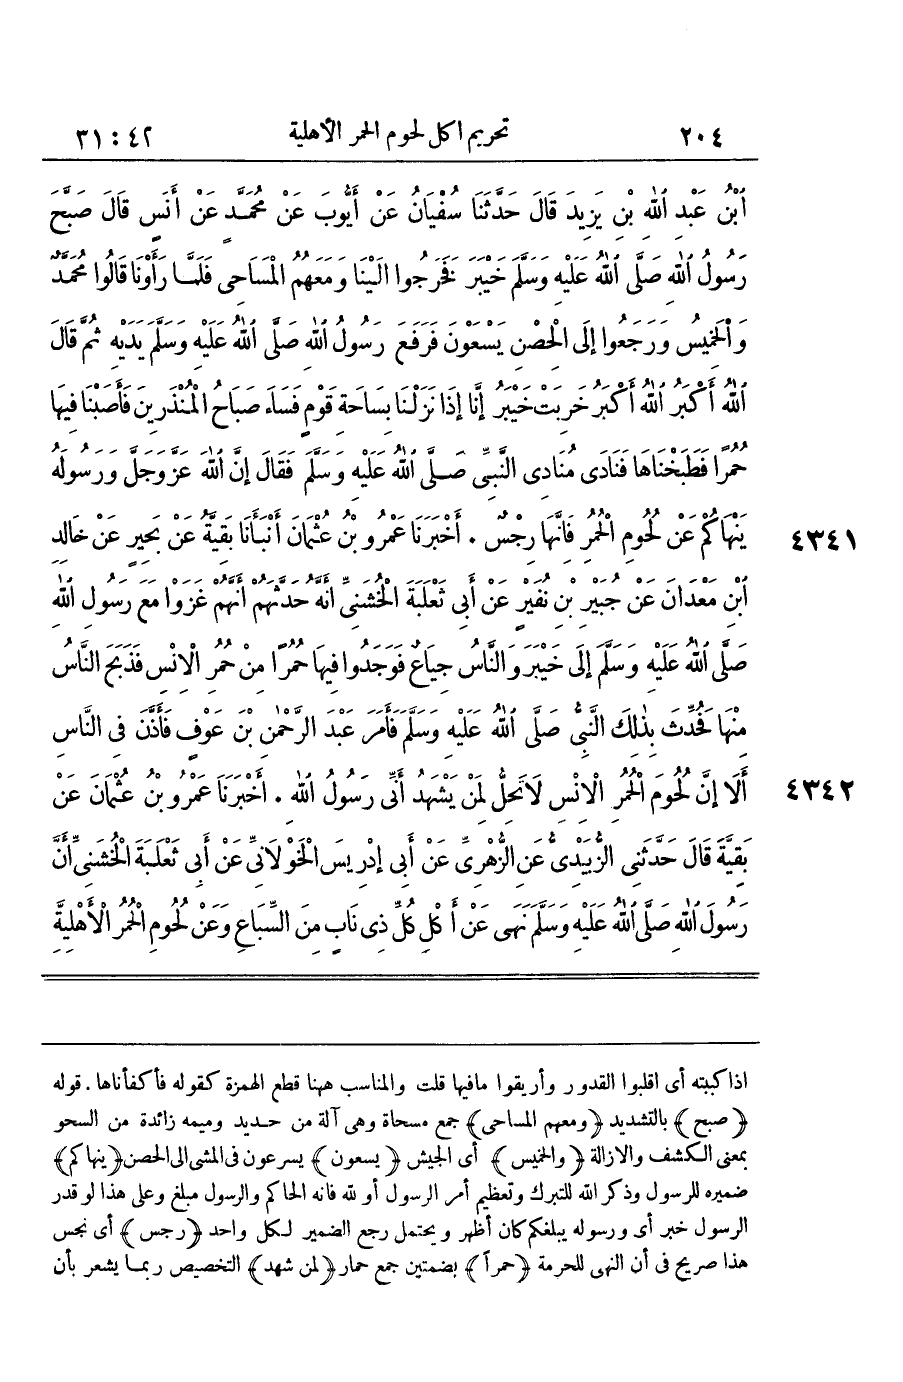 ٢٠٤ تحريم اكل لحوم الحمر الأهلية ٤٢ : ٣١
ٱبْنُ عَبْدِ ٱللهِ بْنِ يَزِيدَ قَالَ حَدَّثَنَا سُفْيَانُ عَنْ أَيُّوبَ عَنْ مُحَمَّدٍ عَنْ أَنَسٍ قَالَ صَبَّحَ
رَسُولُ ٱللهِ صَلَّى ٱللهُ عَلَيْهِ وَسَلَّمَ خَيْبَرَ فَخَرَجُوا الَيْنَا وَمَعَهُمُ الْمَسَاحِى فَلَمَّا رَأَوْنَا قَالُوا مُحَمَّدٌ
وَٱلْخَمِيسُ وَرَجَعُوا إِلَى الْحِصْنِ يَسْعَوْنَ فَرَفَعَ رَسُولُ ٱللهِ صَلَّى ٱللهُ عَلَيْهِ وَسَلَّمَ يَدَيْهِ ثُمَّ قَالَ
ٱللهُ أَكْبَرُ ٱللهُ أَكْبَرُ خَرِبَتْ خَيْبَرُ إِنَّا إِذَا نَزَلْنَا بِسَاحَةِ قَوْمٍ فَسَاءَ صَبَاحُ الْمُنْذَرِينَ فَأَصَبْنَا فِيهَا
حُمُرًا فَطَبَخْنَاهَا فَنَادَى مُنَادِى النَّبِىِّ صَلَّى ٱللهُ عَلَيْهِ وَسَلَّمَ فَقَالَ إِنَّ ٱللهَ عَزَّ وَجَلَّ وَرَسُولَهُ
يَنْهَاكُمْ عَنْ لُحُومِ الْحُمُرِ فَانَّهَا رِجْسٌ . أَخْبَرَنَا عَمْرُو بْنُ عُثْمَانَ أَنْبَأَنَا بَقِيَّةُ عَنْ بَحِيرٍ عَنْ خَالِدِ ٤٣٤١
ٱبْنِ مَعْدَانَ عَنْ جُبَيْرِ بْنِ نُفَيْرٍ عَنْ أَبِى ثَعْلَبَةَ الْخُشَنِىِّ أَنَّهُ حَدَّثَهُمْ أَنَّهُمْ غَزَوْا مَعَ رَسُولِ ٱللهِ
صَلَّى ٱللهُ عَلَيْهِ وَسَلَّمَ إِلَى خَيْبَرَ وَالنَّاسُ جِيَاعٌ فَوَجَدُوا فِيهَا حُمُرًا مِنْ حُمُرِ الْانْسِ فَذَبَحَ النَّاسُ
مِنْهَا فَحُدِّثَ بِذٰلِكَ النَّبِىُّ صَلَّى ٱللهُ عَلَيْهِ وَسَلَّمَ فَأَمَرَ عَبْدَ الرَّحْمٰنِ بْنَ عَوْفٍ فَأَذَّنَ فِى النَّاسِ
أَلَا إِنَّ لُحُومَ الْحُمُرِ الْانْسِ لَا تَحِلُّ لِمَنْ يَشْهَدُ أَنِّى رَسُولُ ٱللهِ . أَخْبَرَنَا عَمْرُو بْنُ عُثْمَانَ عَنْ ٤٣٤٢
بَقِيَّةَ قَالَ حَدَّثَنِى الزُّبَيْدِىُّ عَنِ الزُّهْرِىِّ عَنْ أَبِى إِدْرِيسَ الْخَوْلَانِىِّ عَنْ أَبِى ثَعْلَبَةَ الْخُشَنِىِّ أَنَّ
رَسُولَ ٱللهِ صَلَّى ٱللهُ عَلَيْهِ وَسَلَّمَ نَهَى عَنْ أَكْلِ كُلِّ ذِى نَابٍ مِنَ السِّبَاعِ وَعَنْ لُحُومِ الْحُمُرِ الْأَهْلِيَّةِ
اذا كببته أى اقلبوا القدور وأريقوا مافيها قلت والمناسب ههنا قطع الهمزة كقوله فأكفأناها . قوله
﴿صبح﴾ بالتشديد ﴿ومعهم المساحى﴾ جمع مسحاة وهى آلة من حديد وميمه زائدة من السحو
بمعنى الكشف والازالة ﴿والخميس﴾ أى الجيش ﴿يسعون﴾ يسرعون فى المشى الى الحصن ﴿ينهاكم﴾
ضميره للرسول وذكر الله للتبرك وتعظيم أمر الرسول أو لله فانه الحاكم والرسول مبلغ وعلى هذا لو قدر
الرسول خبر أى ورسوله يبلغكم كان أظهر ويحتمل رجع الضمير لكل واحد ﴿رجس﴾ أى نجس
هذا صريح فى أن النهى للحرمة ﴿حمراً﴾ بضمتين جمع حمار ﴿لمن شهد﴾ التخصيص ربما يشعر بأن